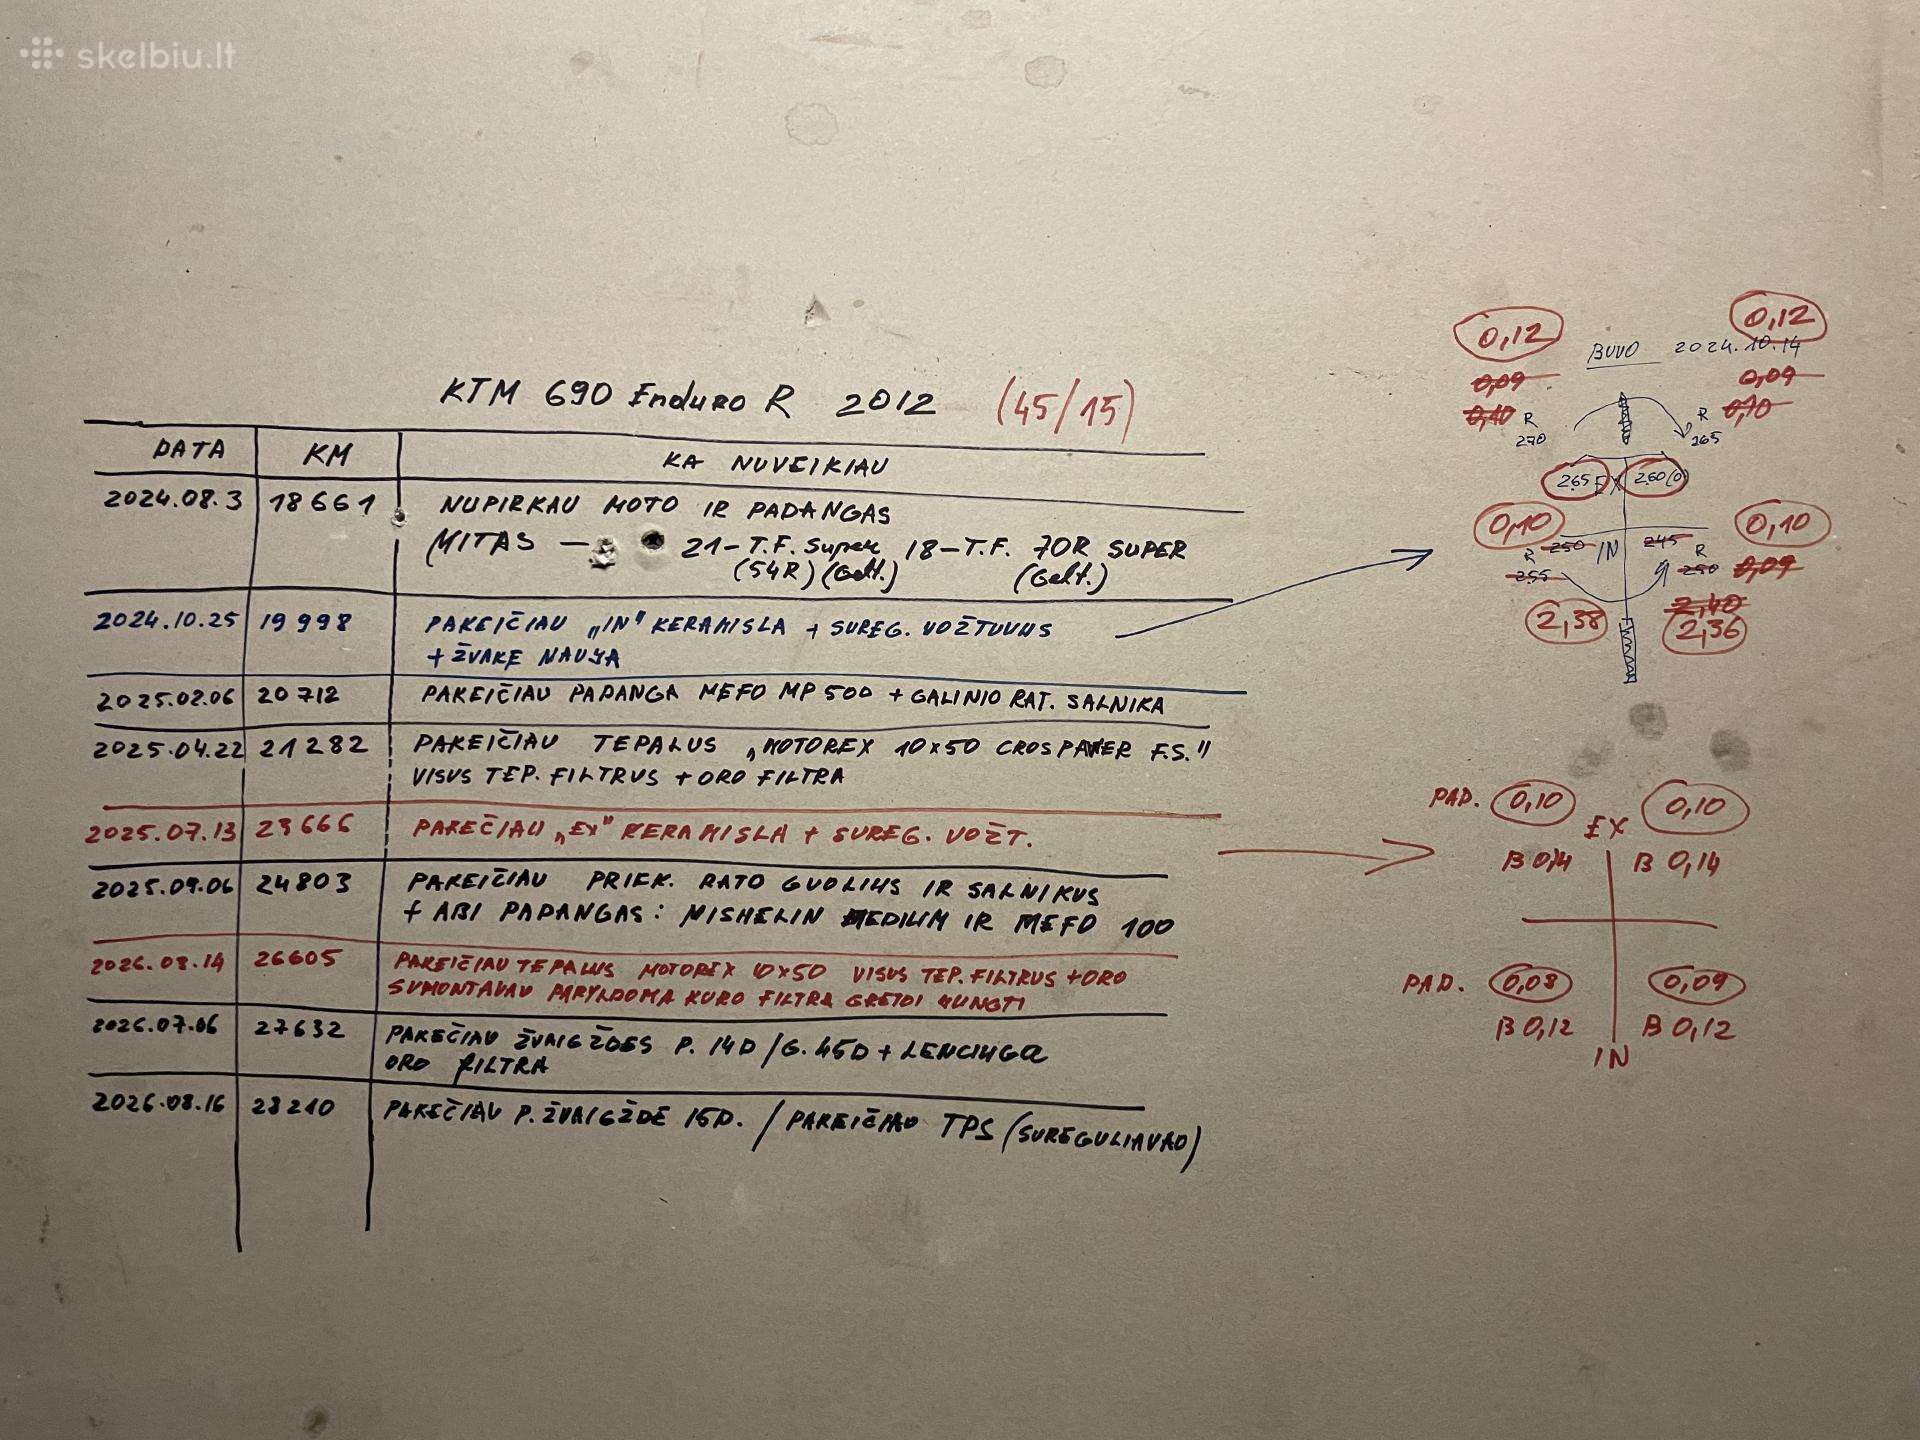 skelbiu.lt
KTM 690 Enduro R 2012 (45/15)
DATA KM KA NUVEIKIAU
2024.08.3 18661 NUPIRKAU MOTO IR PADANGAS
MITAS — 21-T.F. Super 18-T.F. 70R SUPER
(54R) (Gelt.) (Gelt.)
2024.10.25 19998 PAKEIČIAU „IN" KERAMISLA + SUREG. VOŽTUVUS
+ ŽVAKE NAUJA
2025.02.06 20712 PAKEIČIAU PADANGA MEFO MP 500 + GALINIO RAT. SALNIKA
2025.04.22 21282 PAKEIČIAU TEPALUS „MOTOREX 10x50 CROSPAWER F.S."
VISUS TEP. FILTRUS + ORO FILTRA
2025.07.13 23666 PAKEČIAU „EX" KERAMISLA + SUREG. VOŽT.
2025.09.06 24803 PAKEIČIAU PRIEK. RATO GUOLIUS IR SALNIKUS
+ ABI PADANGAS: MISHELIN MEDIUM IR MEFO 100
2026.08.14 26605 PAKEIČIAU TEPALUS MOTOREX 10x50 VISUS TEP. FILTRUS + ORO
SUMONTAVAU PAPYLDOMA KURO FILTRA GREIDI JUNGTI
2026.07.06 27632 PAKEČIAU ŽVAIGŽDES P. 14D/G. 45D + LENCIUGA
ORO FILTRA
2026.08.16 28210 PAKEČIAU P. ŽVAIGŽDE 15D. / PAKEIČIAU TPS (SUREGULIAVAO)
0,12 0,12
BUVO 2024.10.14
0,09 0,09
0,10 R R 0,10
270 265
265 EX 260(0)
0,10 0,10
250 IN 245
R R
255 250 0,09
2,40
2,38 2,36
PAD. 0,10 0,10
EX
B 0,14 B 0,14
PAD. 0,08 0,09
B 0,12 B 0,12
IN